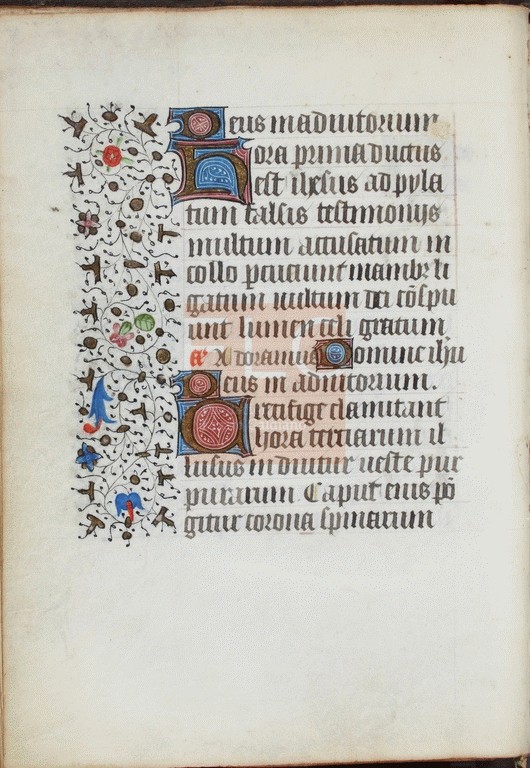 Deus in adiutorium
Hora prima ductus
est ihesus ad pyla
tum falsis testimonijs
multum accusatum in
collo pcuciunt manib; li
gatum uultum dei cōspu
unt lumen celi gratum
Adoramus Domine ihu
Deus in adiutorium.
Crucifige clamitant
hora terciarum il
lusus induitur ueste pur
purarum. Caput eius pō
gitur corona spinarum